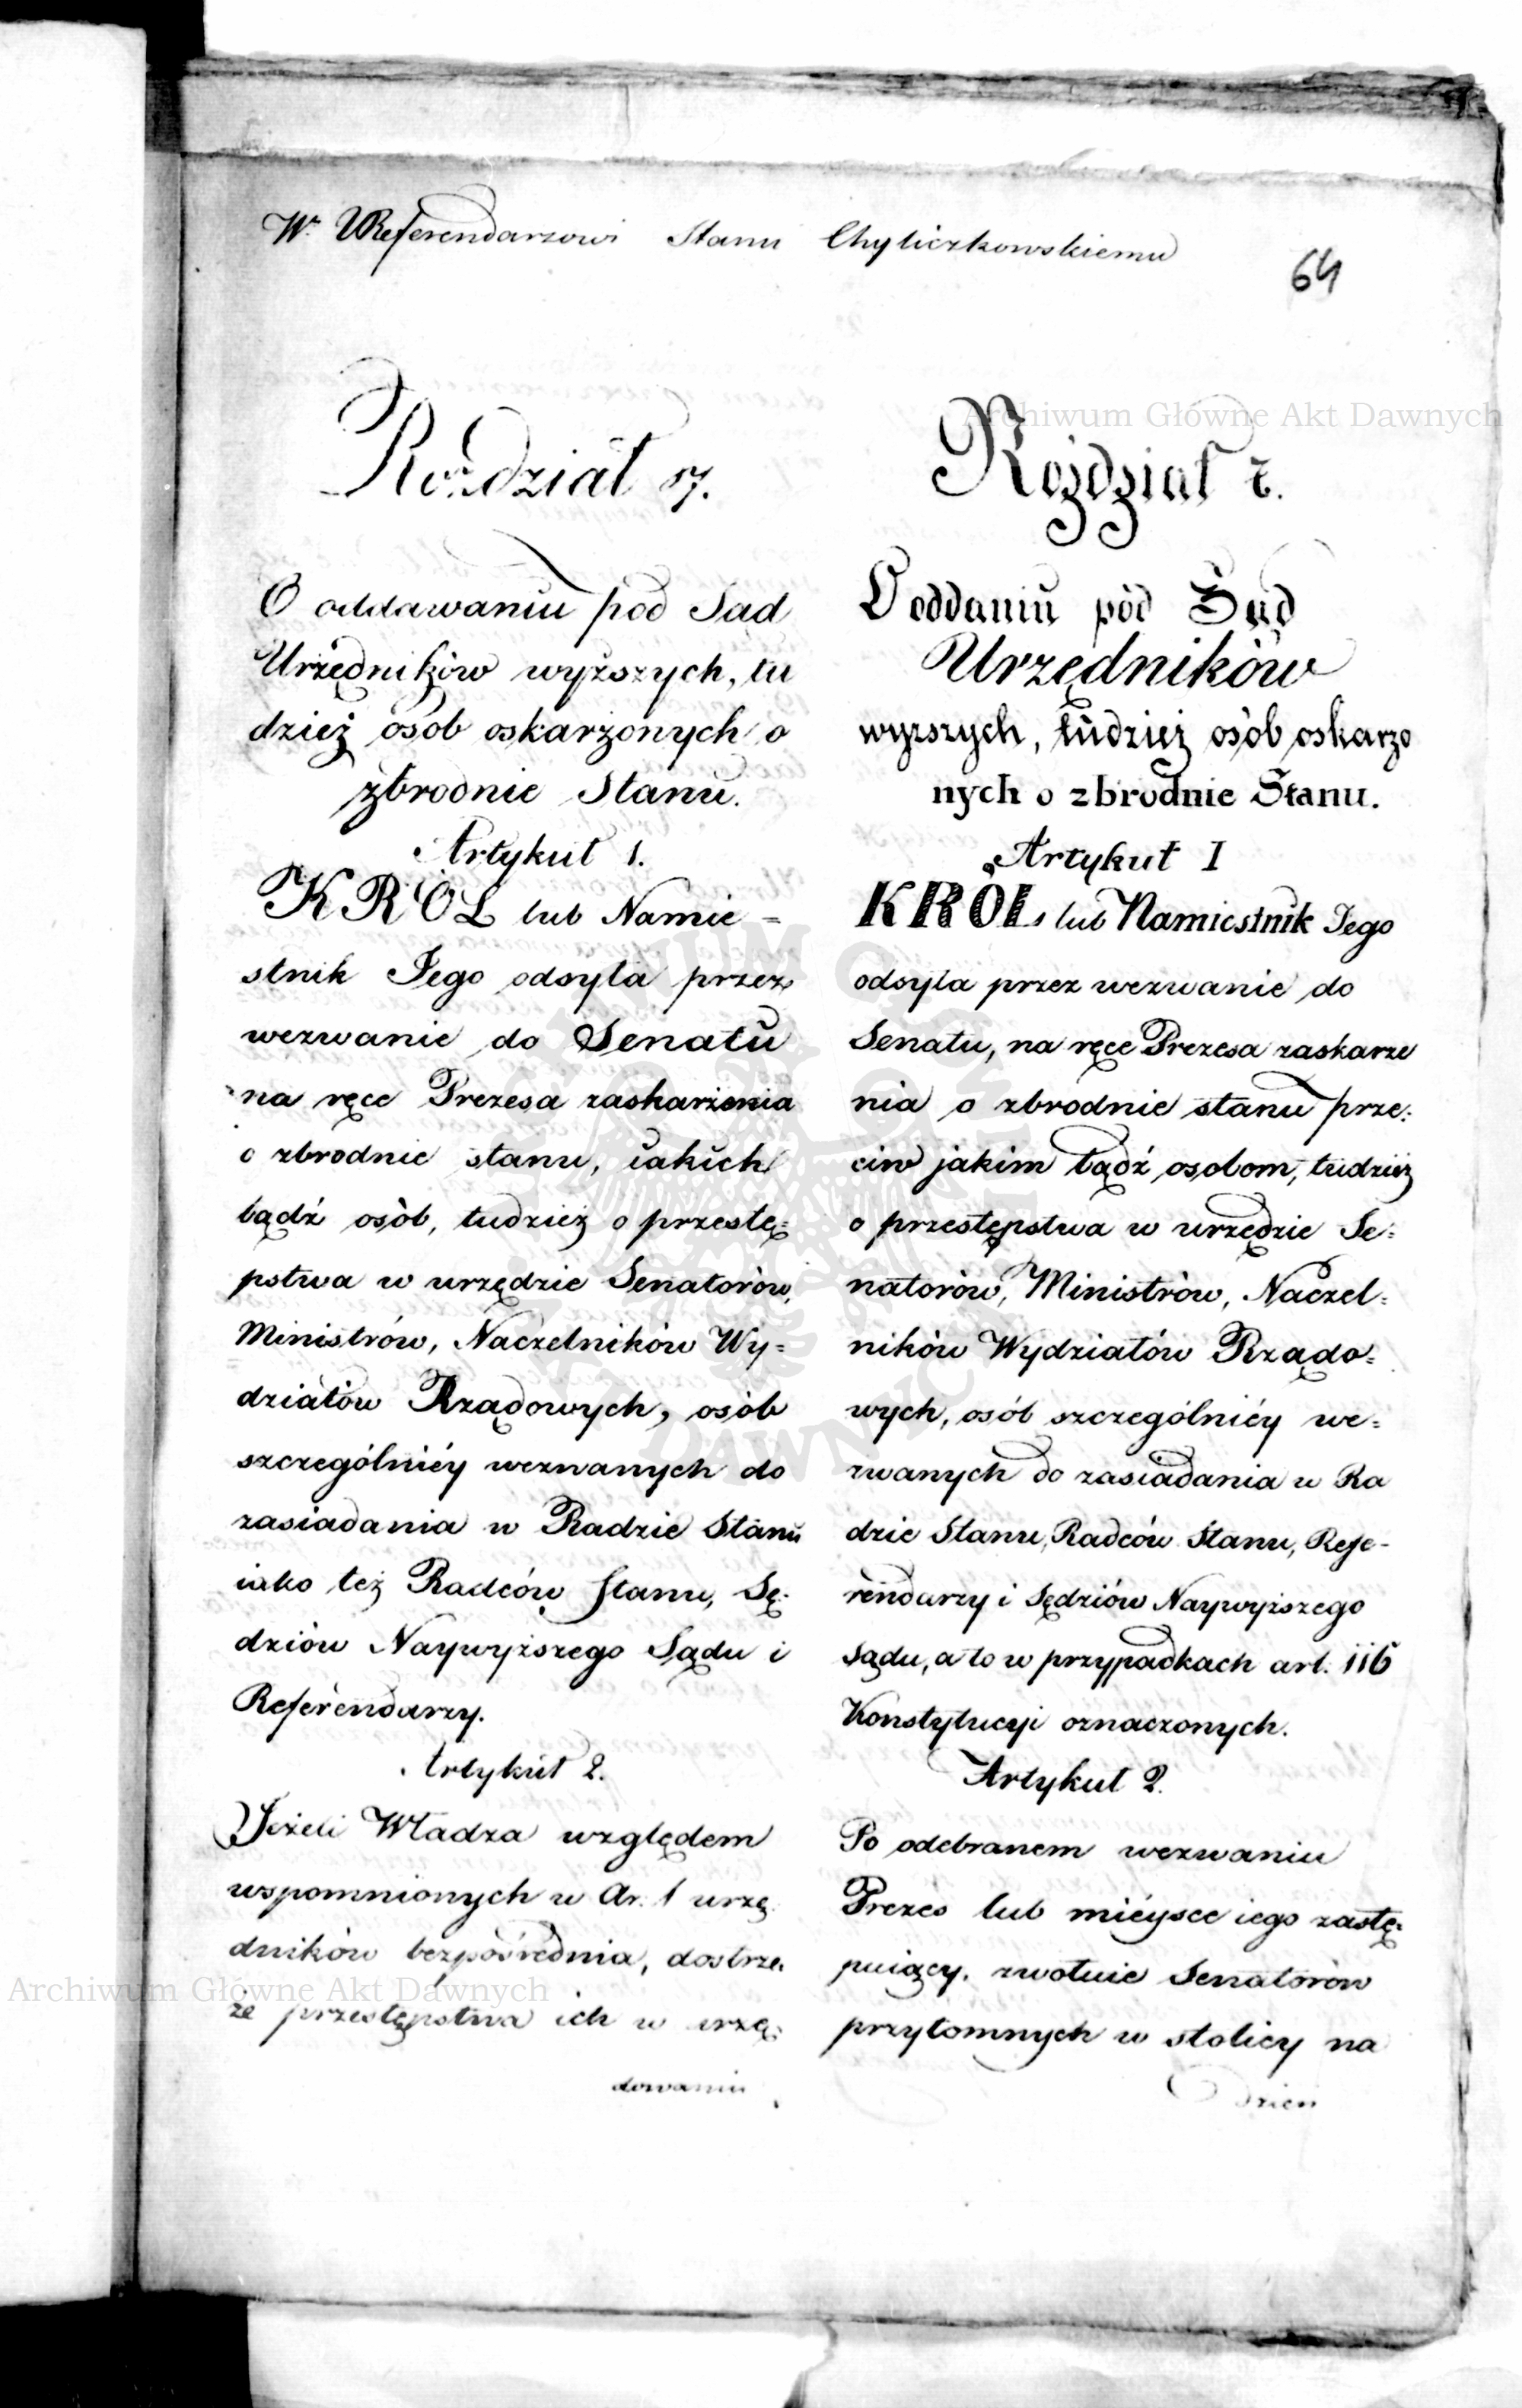 Wr. Referendarzowi Stanu Chyliczkowskiemu
64
Rozdział 17.
O oddawaniu pod Sąd
Urzędników wyższych, tu
dzież osób oskarżonych o
zbrodnie Stanu.
Artykuł 1.
KRÓL lub Namie=
stnik Jego odsyła przez
wezwanie do Senatu
na ręce Prezesa zaskarżenia
o zbrodnie stanu, iakich
bądź osòb, tudzież o przestę=
pstwa w urzędzie Senatorów,
Ministrów, Naczelników Wy=
działów Rządowych, osób
szczególniéy wezwanych do
zasiadania w Radzie Stanu
iako też Radców Stanu, Sę=
dziów Naywyższego Sądu i
Referendarzy.
Artykuł 2.
Jeżeli Władza względem
wspomnionych w Ar. 1 urzę
dników bezpośrednia, dostrze=
że przestępstwa ich w urzę=
dowaniu
Rozdział
O oddaniu pod Sąd
Urzędników
wyższych, tudzież osòb oskarżo
nych o zbrodnie Stanu.
Artykuł I
KRÓL lub Namiestnik Jego
odsyła przez wezwanie do
Senatu, na ręce Prezesa zaskarże
nia o zbrodnie stanu prze=
ciw jakim bądź osobom, tudzież
o przestępstwa w urzędzie Se=
natorów, Ministrów, Naczel=
ników Wydziałów Rządo=
wych, osób szczególniéy we=
zwanych do zasiadania w Ra
dzie Stanu, Radców Stanu, Refe-
rendarzy i Sędziów Naywyższego
Sądu, a to w przypadkach art. 116
Konstytucyi oznaczonych.
Artykuł 2.
Po odebranem wezwaniu
Prezes lub miéysce iego zastę=
puiący, zwołuie Senatorów
przytomnych w stolicy na
dzień
Archiwum Główne Akt Dawnych
Archiwum Główne Akt Dawnych